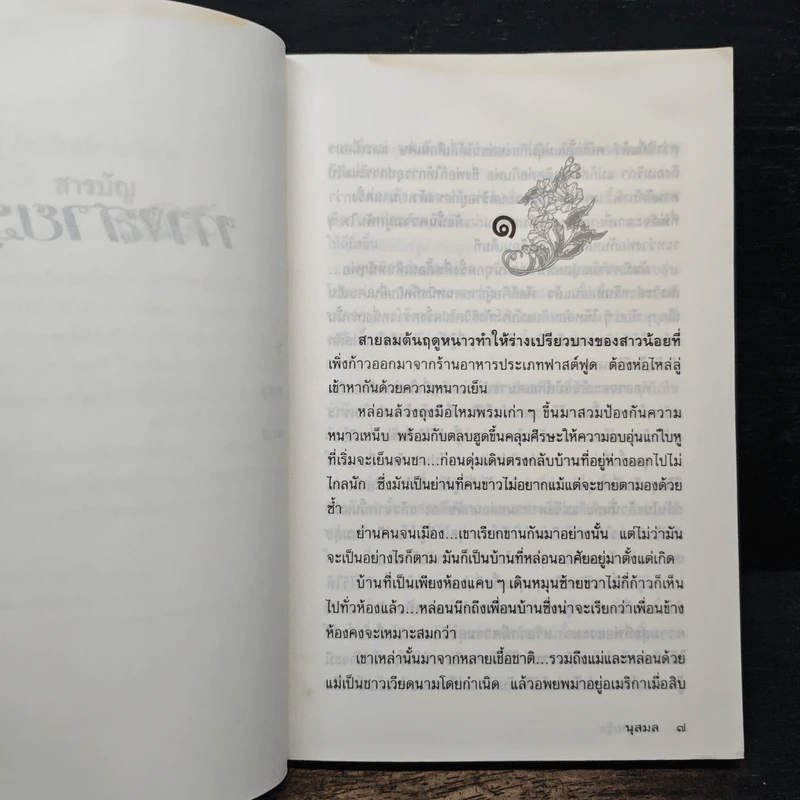 สารบัญ
๑
สายลมต้นฤดูหนาวทำให้ร่างเปรียวบางของสาวน้อยที่
เพิ่งก้าวออกมาจากร้านอาหารประเภทฟาสต์ฟูด ต้องห่อไหล่ลู่
เข้าหากันด้วยความหนาวเย็น
หล่อนล้วงถุงมือไหมพรมเก่า ๆ ขึ้นมาสวมป้องกันความ
หนาวเหน็บ พร้อมกับตลบฮูดขึ้นคลุมศีรษะให้ความอบอุ่นแก่ใบหู
ที่เริ่มจะเย็นจนชา...ก่อนดุ่มเดินตรงกลับบ้านที่อยู่ห่างออกไปไม่
ไกลนัก ซึ่งมันเป็นย่านที่คนขาวไม่อยากแม้แต่จะชายตามองด้วย
ซ้ำ
ย่านคนจนเมือง...เขาเรียกขานกันมาอย่างนั้น แต่ไม่ว่ามัน
จะเป็นอย่างไรก็ตาม มันก็เป็นบ้านที่หล่อนอาศัยอยู่มาตั้งแต่เกิด
บ้านที่เป็นเพียงห้องแคบ ๆ เดินหมุนซ้ายขวาไม่กี่ก้าวก็เห็น
ไปทั่วห้องแล้ว...หล่อนนึกถึงเพื่อนบ้านซึ่งน่าจะเรียกว่าเพื่อนข้าง
ห้องคงจะเหมาะสมกว่า
เขาเหล่านั้นมาจากหลายเชื้อชาติ...รวมถึงแม่และหล่อนด้วย
แม่เป็นชาวเวียดนามโดยกำเนิด แล้วอพยพมาอยู่อเมริกาเมื่อสิบ
นุสมล ๗